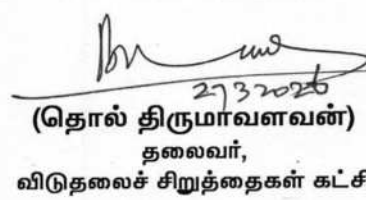 27 3 2026
(தொல் திருமாவளவன்)
தலைவர்,
விடுதலைச் சிறுத்தைகள் கட்சி